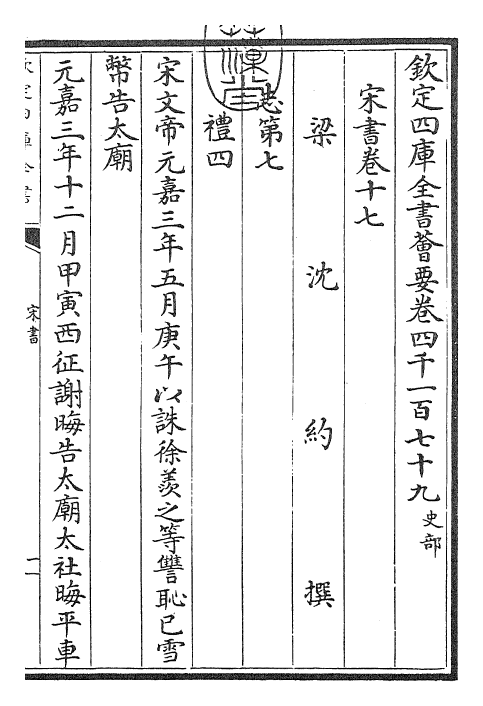 欽定四庫全書薈要卷四千一百七十九 史部
宋書卷十七
梁沈約撰
志第七
禮四
宋文帝元嘉三年五月庚午以誅徐羨之等讐恥已雪
幣告太廟
元嘉三年十二月甲寅西征謝晦告太廟太社晦平車
欽定四庫全書
宋書